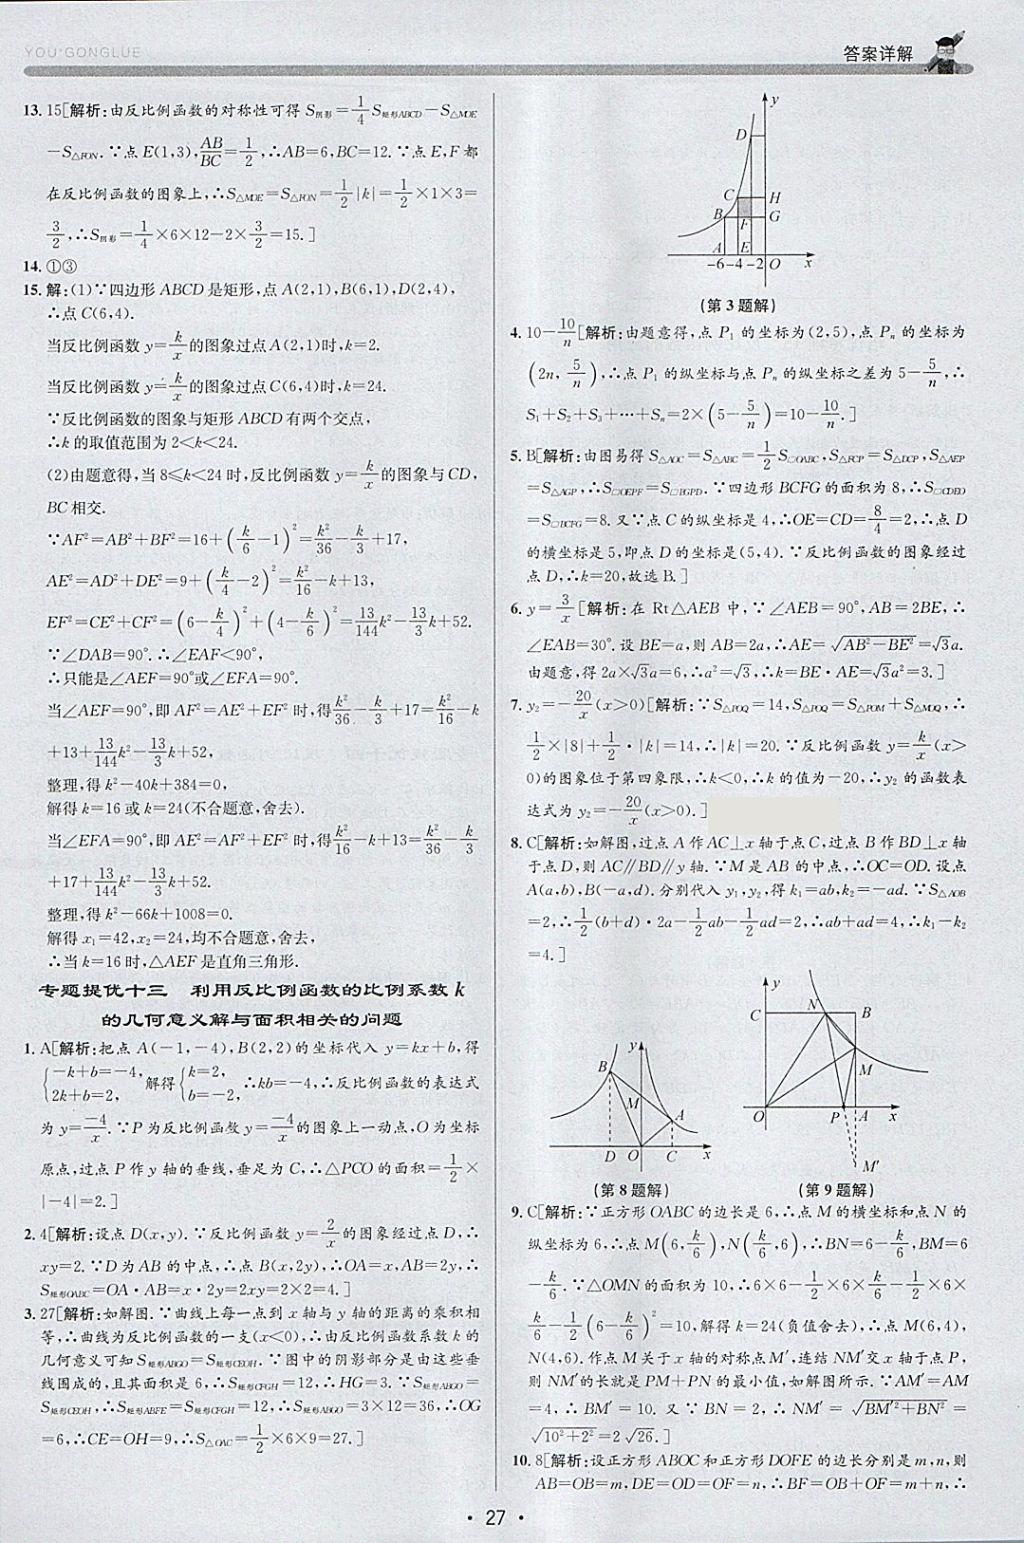 YOU·GONGLUE
答案详解
13. 15[解析:由反比例函数的对称性可得 S阴影=1/4 S矩形ABCD−S△MOE
−S△FON. ∵点 E(1,3), AB/BC=1/2, ∴AB=6,BC=12. ∵点 E,F 都
在反比例函数的图象上,∴S△MOE=S△FON=1/2|k|=1/2×1×3=
3/2,∴S阴影=1/4×6×12−2×3/2=15.]
14. ①③
15. 解:(1)∵四边形 ABCD 是矩形,点 A(2,1),B(6,1),D(2,4),
∴点 C(6,4).
当反比例函数 y=k/x 的图象过点 A(2,1)时,k=2.
当反比例函数 y=k/x 的图象过点 C(6,4)时,k=24.
∵反比例函数的图象与矩形 ABCD 有两个交点,
∴k 的取值范围为 2<k<24.
(2)由题意得,当 8≤k<24 时,反比例函数 y=k/x 的图象与 CD,
BC 相交.
∵AF²=AB²+BF²=16+(k/6−1)²=k²/36−k/3+17,
AE²=AD²+DE²=9+(k/4−2)²=k²/16−k+13,
EF²=CE²+CF²=(6−k/4)²+(4−k/6)²=13/144k²−13/3k+52.
∵∠DAB=90°. ∴∠EAF<90°,
∴只能是∠AEF=90°或∠EFA=90°.
当∠AEF=90°,即 AF²=AE²+EF² 时,得k²/36−k/3+17=k²/16−k
+13+13/144k²−13/3k+52,
整理,得 k²−40k+384=0,
解得 k=16 或 k=24(不合题意,舍去).
当∠EFA=90°,即 AE²=AF²+EF² 时,得k²/16−k+13=k²/36−k/3
+17+13/144k²−13/3k+52.
整理,得 k²−66k+1008=0.
解得 x₁=42,x₂=24,均不合题意,舍去,
∴当 k=16 时,△AEF 是直角三角形.
专题提优十三 利用反比例函数的比例系数 k
的几何意义解与面积相关的问题
1. A[解析:把点 A(−1,−4),B(2,2)的坐标代入 y=kx+b,得
{−k+b=−4, 2k+b=2, 解得{k=2, b=−2. ∴kb=−4,∴反比例函数的表达式
为 y=−4/x. ∵P 为反比例函数 y=−4/x 的图象上一动点,O 为坐标
原点,过点 P 作 y 轴的垂线,垂足为 C,∴△PCO 的面积=1/2×
|−4|=2.]
2. 4[解析:设点 D(x,y). ∵反比例函数 y=2/x 的图象经过点 D,∴
xy=2. ∵D 为 AB 的中点,∴点 B(x,2y),∴OA=x,AB=2y,∴
S矩形OABC=OA·AB=x·2y=2xy=2×2=4.]
3. 27[解析:如解图. ∵曲线上每一点到 x 轴与 y 轴的距离的乘积相
等,∴曲线为反比例函数的一支(x<0),∴由反比例函数系数 k 的
几何意义可知 S矩形ABGO=S矩形CEOH. ∵图中的阴影部分是由这些垂
线围成的,且其面积是 6,∴S矩形CFGH=12,∴HG=3. ∵S矩形ABGO=
S矩形CEOH,∴S矩形ABFE=S矩形CFGH=12,∴S矩形ABGO=3×12=36,∴OG
=6,∴CE=OH=9,∴S△OAC=1/2×6×9=27.]
y
D
C H
B F G
A E
−6 −4 −2 O x
(第 3 题解)
4. 10−10/n[解析:由题意得,点 P₁ 的坐标为(2,5),点 Pₙ 的坐标为
(2n, 5/n),∴点 P₁ 的纵坐标与点 Pₙ 的纵坐标之差为 5−5/n,∴
S₁+S₂+S₃+…+Sₙ=2×(5−5/n)=10−10/n.]
5. B[解析:由图易得 S△AOC=S△ABC=1/2S□OABC,S△FCP=S△DCP,S△AEP
=S△AGP,∴S□OEPF=S□BGPD. ∵四边形 BCFG 的面积为 8,∴S□CDEO
=S□BCFG=8. 又∵点 C 的纵坐标是 4,∴OE=CD=8/4=2,∴点 D
的横坐标是 5,即点 D 的坐标是(5,4). ∵反比例函数的图象经过
点 D,∴k=20,故选 B.]
6. y=3/x[解析:在 Rt△AEB 中,∵∠AEB=90°,AB=2BE,∴
∠EAB=30°. 设 BE=a,则 AB=2a,∴AE=√(AB²−BE²)=√3a.
由题意,得 2a×√3a=6,∴a²=√3,∴k=BE·AE=√3a²=3.]
7. y₂=−20/x(x>0)[解析:∵S△POQ=14,S△POQ=S△POM+S△MOQ,∴
1/2×|8|+1/2·|k|=14,∴|k|=20. ∵反比例函数 y=k/x(x>
0)的图象位于第四象限,∴k<0,∴k 的值为−20,∴y₂ 的函数表
达式为 y₂=−20/x(x>0).]
8. C[解析:如解图,过点 A 作 AC⊥x 轴于点 C,过点 B 作 BD⊥x 轴
于点 D,则 AC∥BD∥y 轴. ∵M 是 AB 的中点,∴OC=OD. 设点
A(a,b),B(−a,d). 分别代入 y₁,y₂,得 k₁=ab,k₂=−ad. ∵S△AOB
=2,∴1/2(b+d)·2a−1/2ab−1/2ad=2,∴ab+ad=4,∴k₁−k₂
=4.]
y
B
M
A
D O C x
(第 8 题解)
y
C N B
M
O P A x
M′
(第 9 题解)
9. C[解析:∵正方形 OABC 的边长是 6,∴点 M 的横坐标和点 N 的
纵坐标为 6,∴点 M(6,k/6),N(k/6,6),∴BN=6−k/6,BM=6
−k/6. ∵△OMN 的面积为 10,∴6×6−1/2×6×k/6−1/2×6×
k/6−1/2(6−k/6)²=10,解得 k=24(负值舍去),∴点 M(6,4),
N(4,6). 作点 M 关于 x 轴的对称点 M′,连结 NM′交 x 轴于点 P,
则 NM′的长就是 PM+PN 的最小值,如解图所示. ∵AM′=AM
=4,∴BM′=10. 又∵BN=2,∴NM′=√(BM′²+BN²)=
√(10²+2²)=2√26.]
10. 8[解析:设正方形 ABOC 和正方形 DOFE 的边长分别是 m,n,则
AB=OB=m,DE=OD=OF=n,∴BF=OB+OF=m+n,∴
· 27 ·